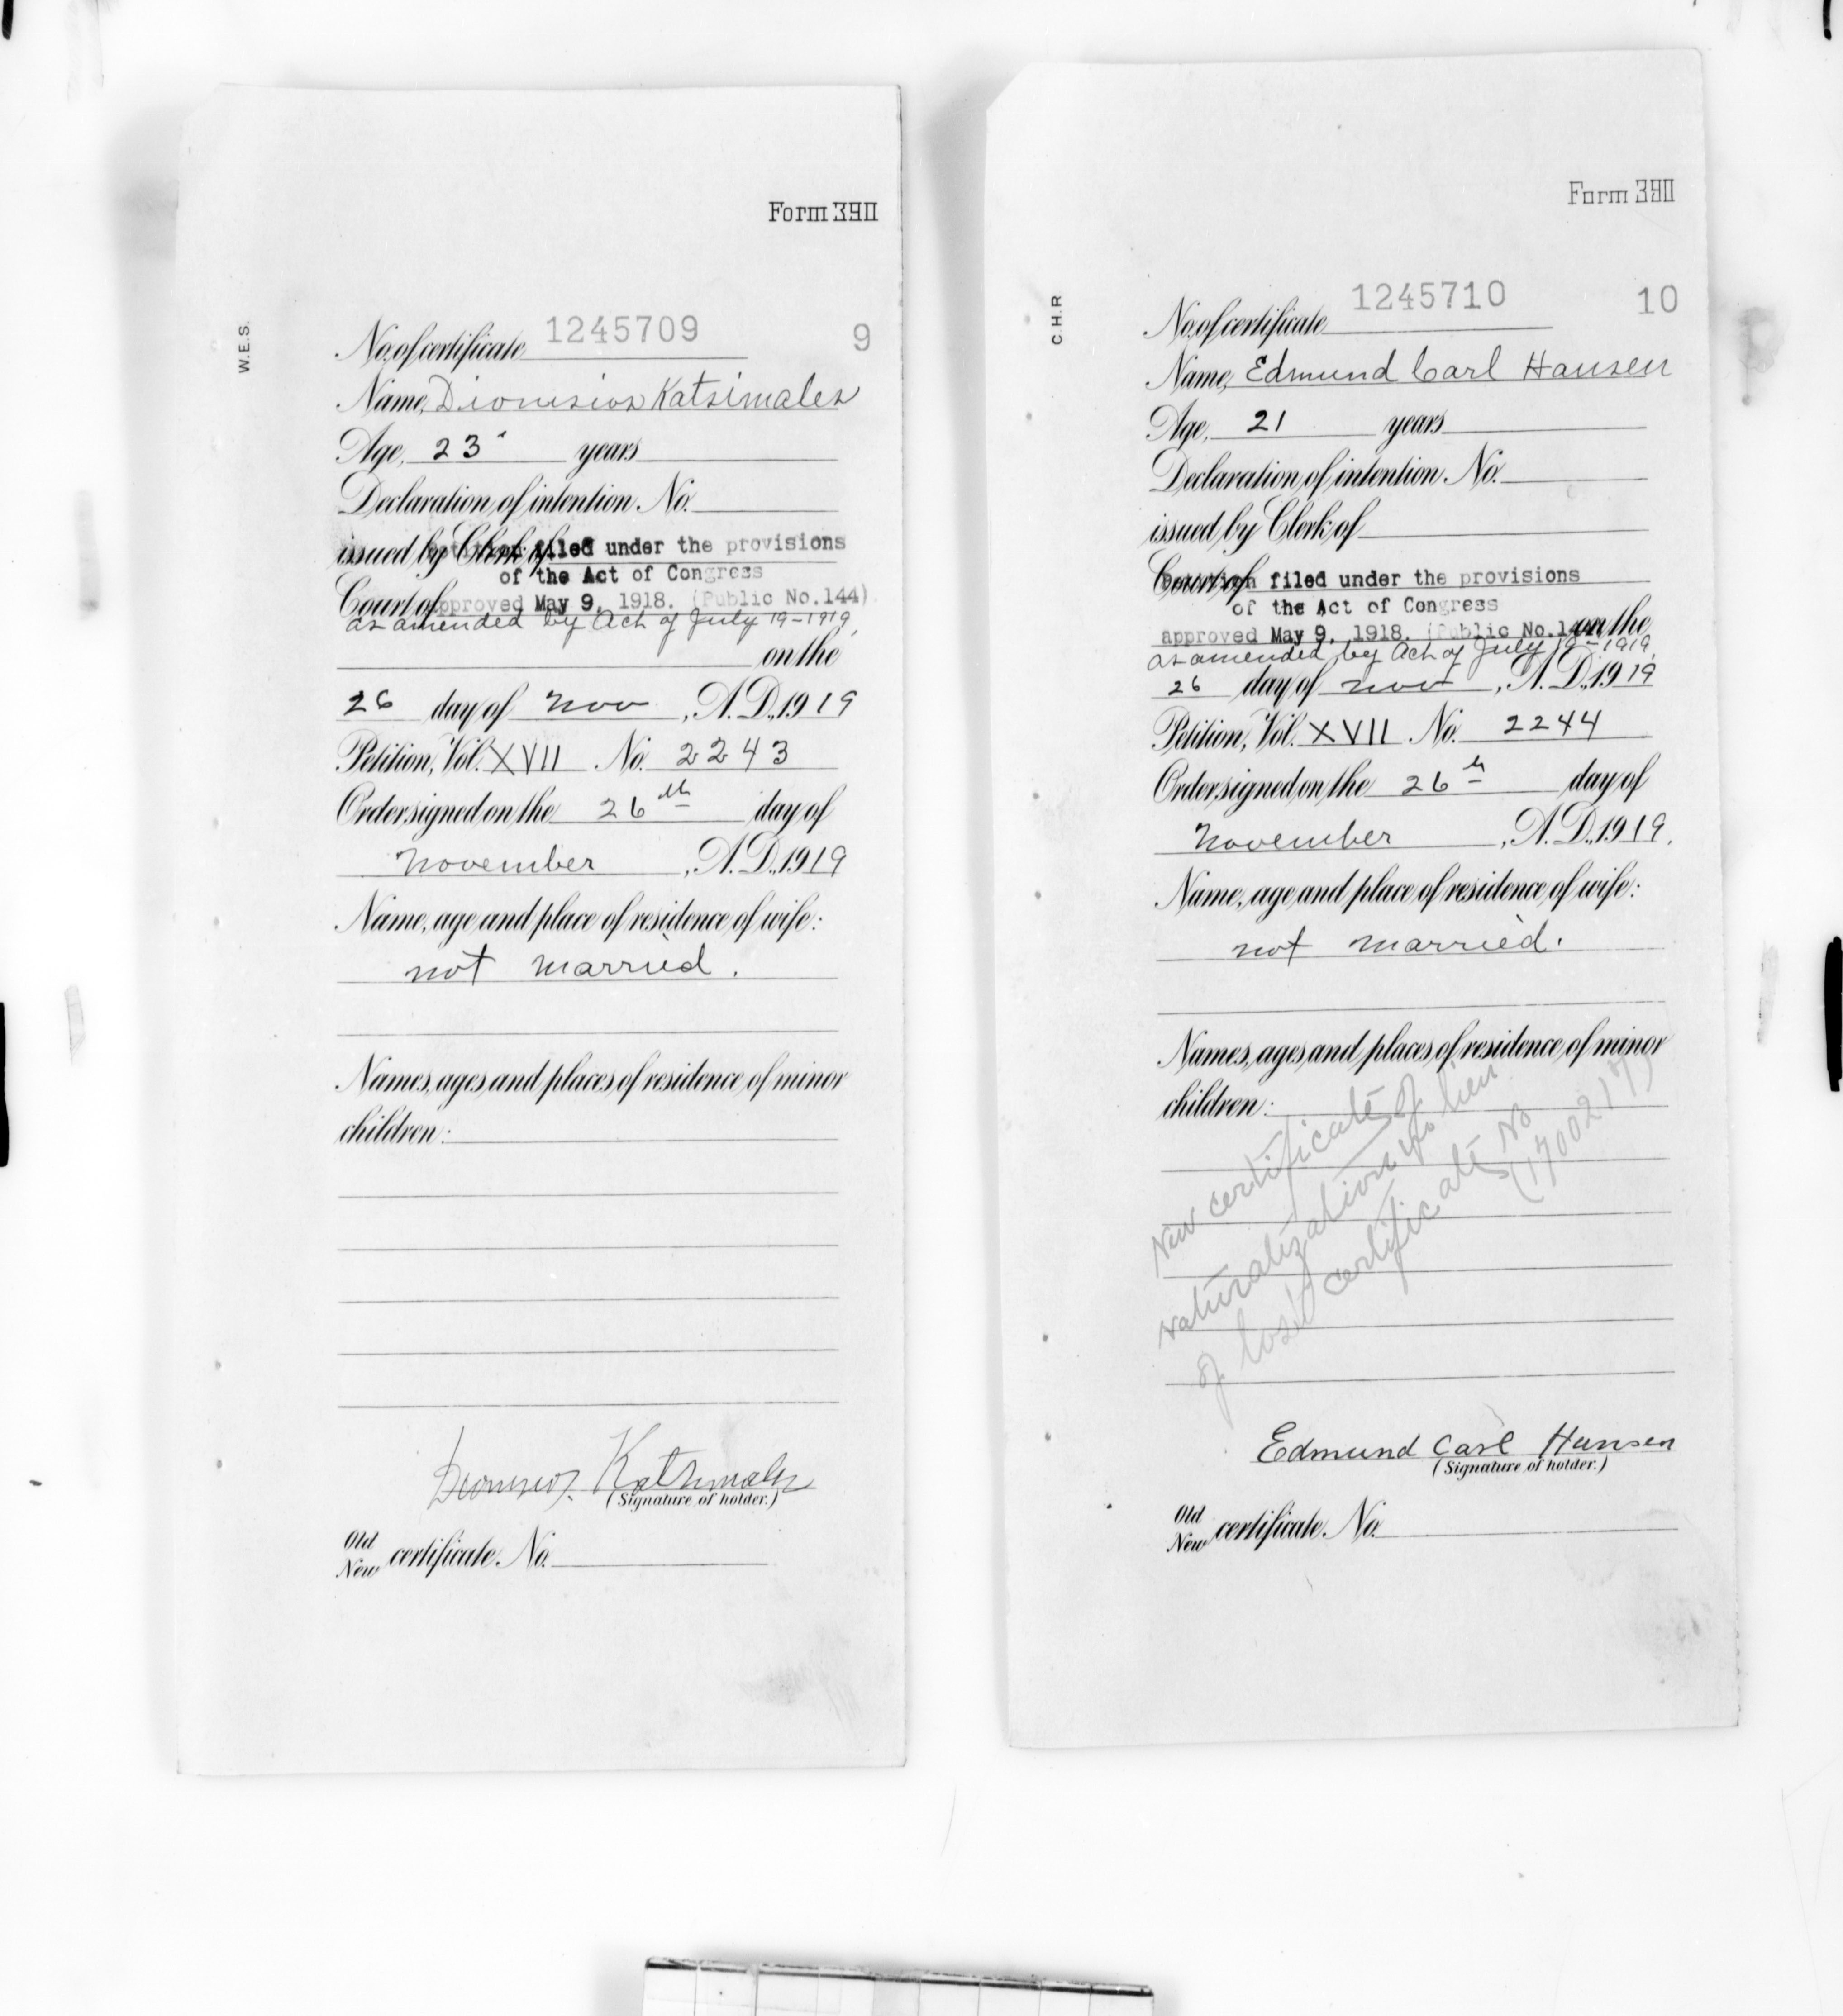 Form 390
W.E.S.
No. of certificate 1245709 9
Name, Dionisios Katsimales
Age, 23 years
Declaration of intention No.
issued by Clerk of
Petition filed under the provisions
of the Act of Congress
Court of
approved May 9, 1918. (Public No. 144)
as amended by Act of July 19-1919,
on the
26 day of Nov, A.D., 1919
Petition, Vol. XVII No. 2243
Order signed on the 26th day of
November, A.D., 1919
Name, age and place of residence of wife:
not married.
Names, ages and places of residence of minor
children:
Dionisios Katsimales
(Signature of holder.)
Old
New certificate No.
Form 390
C.H.R
No. of certificate 1245710 10
Name, Edmund Carl Hansen
Age, 21 years
Declaration of intention No.
issued by Clerk of
Court of
Petition filed under the provisions
of the Act of Congress
approved May 9, 1918. (Public No. 144) on the
as amended by Act of July 19-1919,
26 day of Nov, A.D., 1919
Petition, Vol. XVII No. 2244
Order signed on the 26th day of
November, A.D., 1919.
Name, age and place of residence of wife:
not married.
Names, ages and places of residence of minor
children:
New certificate of
naturalization in lieu
of lost certificate No
(1700217)
Edmund Carl Hansen
(Signature of holder.)
Old
New certificate No.